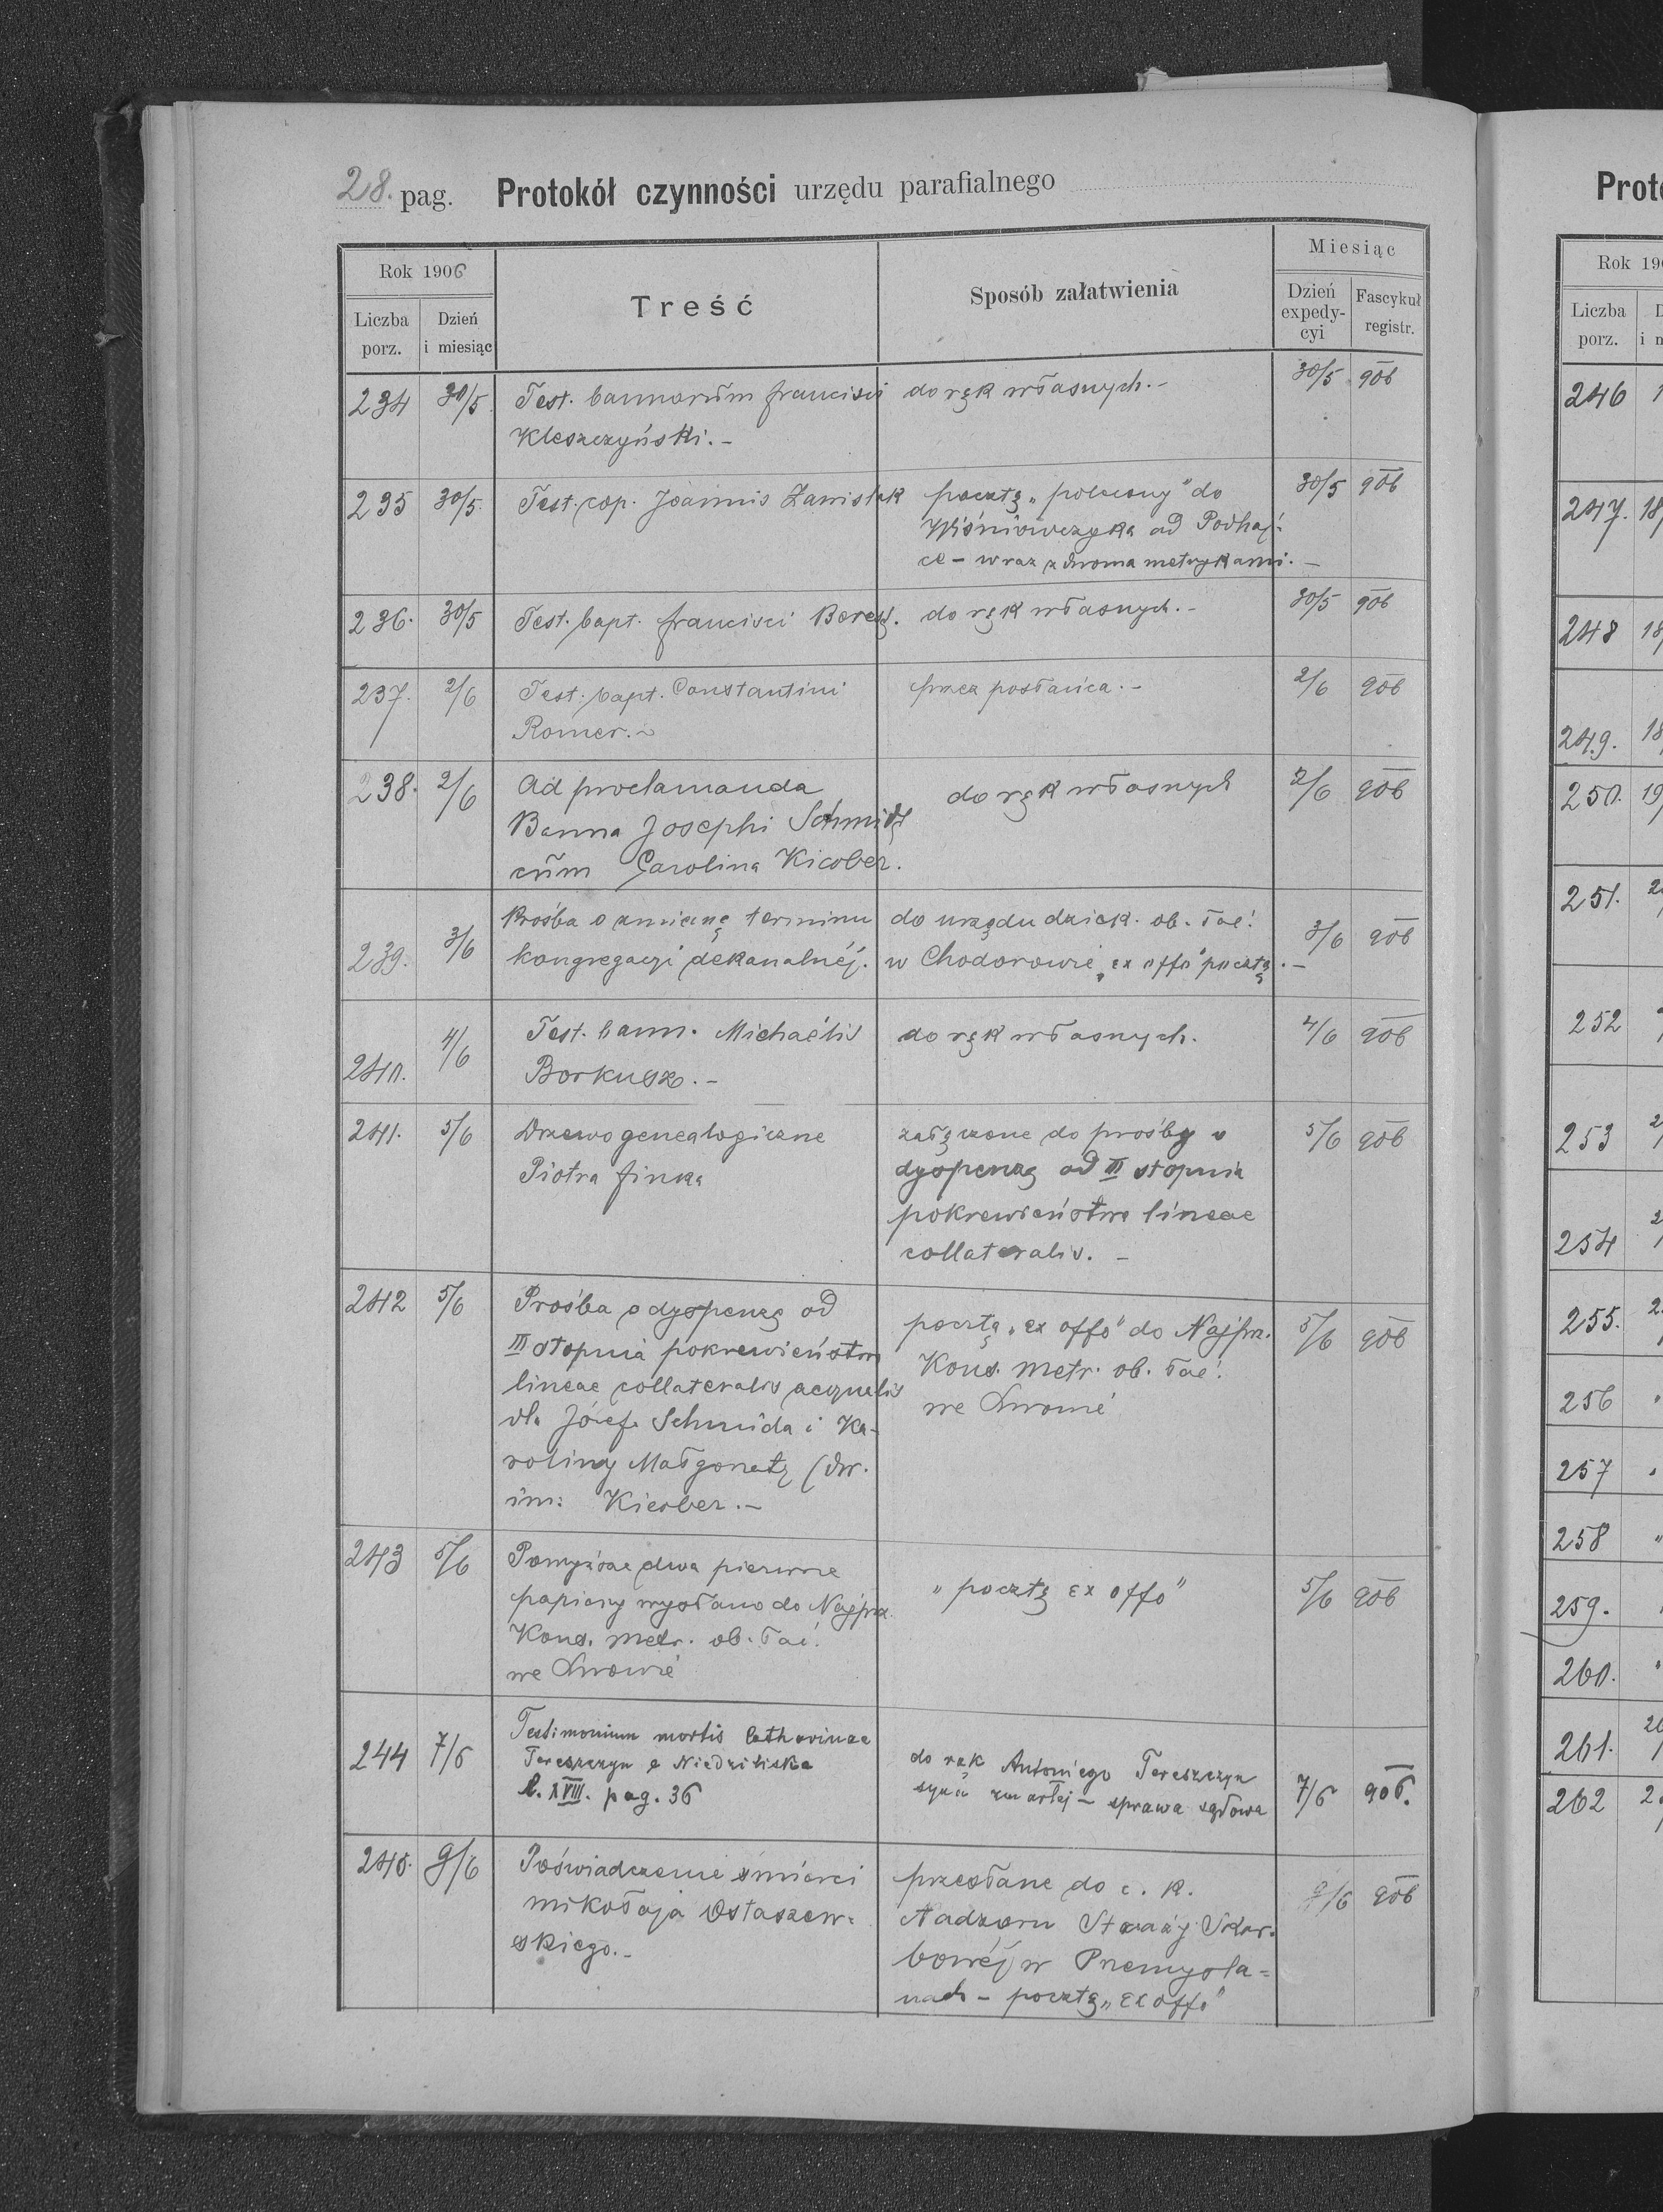 28. pag. Protokół czynności urzędu parafialnego
Rok 1906
Liczba porz.
Dzień i miesiąc
Treść
Sposób załatwienia
Miesiąc
Dzień expedy-cyi
Fascykuł registr.
234 30/5 Test. bannorŭm francisci do rąk własnych.- 30/5 906
Kleszczyński.-
235 30/5. Test. cop. Joannis Zawislak pocztą „polecony" do 30/5 906
Wiśniowczyka ad Podhaj-
ce - wraz z dwoma metrykami.-
236. 30/5 Test. bapt. francisci Beresz. do rąk własnych.- 30/5 906
237. 2/6 Test. bapt. Constantini przez posłańca.- 2/6 906
Romer.-
238. 2/6 Ad proclamanda do rąk własnych 2/6 906
Banna Josephi Schmidt
cŭm Carolina Kicober.
239. 3/6 Prośba o zmianę terminu do urzędu dziek. ob. łać. 3/6 906
kongregacyi dekanalnéj. w Chodorowie „ex offo" pocztą.-
240. 4/6 Test. bann. Michaélis do rąk własnych. 4/6 906
Borkusz.-
241. 5/6 Drzewo genealogiczne załączone do prośby o 5/6 906
Piotra finka dyspenzę od III stopnia
pokrewieństwa lineae
collateralis.-
242 5/6 Prośba o dyspenzę od pocztą „ex offo" do Najprz. 5/6 906
III stopnia pokrewieństwa Kons. metr. ob. łać.
lineae collateralis aequalis we Lwowie
dla Józefa Schmida i Ka-
roliny Małgorzaty (dw.
im: Kicober.-
243 5/6 Powyższe dwa pierwsze „pocztą ex offo" 5/6 906
papiery wysłano do Najprz.
Kons. metr. ob. łać.
we Lwowie
244 7/6 Testimonium mortis Catharinae do rąk Antoniego Tereszczyn 7/6 906.
Tereszczyn e Niedzieliska syna zmarłej - sprawa sądowa
l. XVIII. pag. 36
245. 9/6 Poświadczenie śmierci przesłane do c. k. 9/6 906
mikołaja Ostaszew- Nadzoru Straży Skar-
skiego.- bowéj w Przemyśla-
nach - pocztą „ex offo"
Prot
Rok 19
Liczba porz.
246
247. 18/
248 18/
249. 18/
250. 19/
251.
252
253
254
255.
256
257
258
259.
260.
261.
262